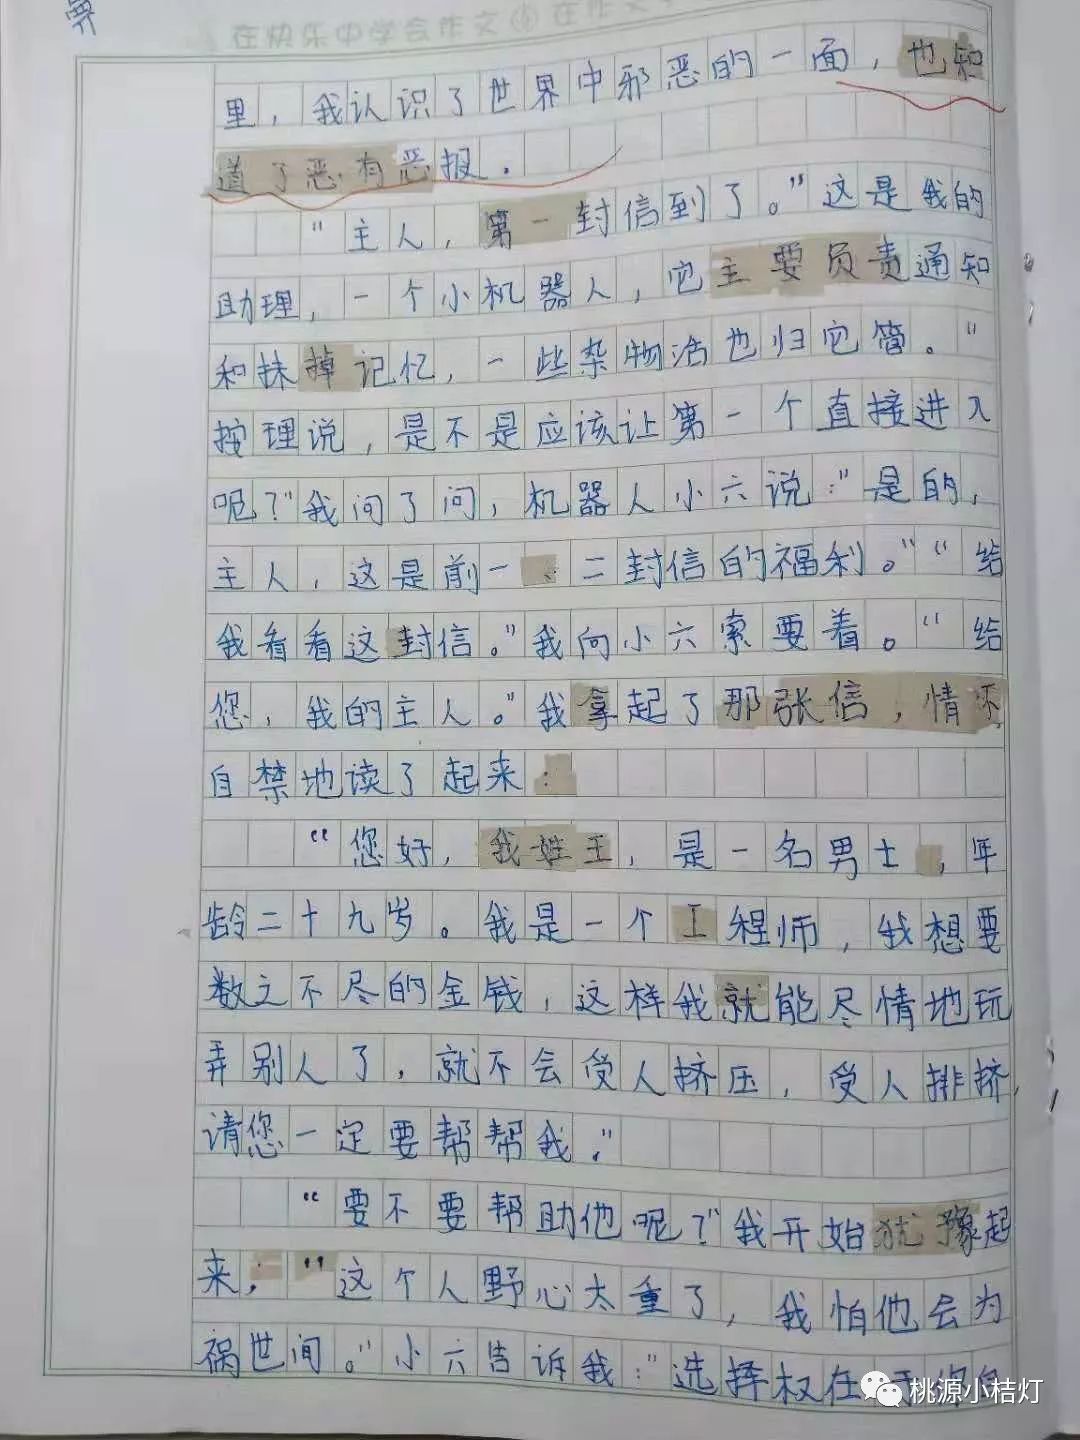 在快乐中学会作文
里，我认识了世界中邪恶的一面，也知
道了恶有恶报．
“主人，第一封信到了。”这是我的
助理，一个小机器人，它主要负责通知
和抹掉记忆，一些杂物活也归它管。“
按理说，是不是应该让第一个直接进入
呢？”我问了问，机器人小六说：“是的，
主人，这是前一、二封信的福利。”“给
我看看这封信。”我向小六索要着。“给
您，我的主人。”我拿起了那张信，情不
自禁地读了起来：
“您好，我姓王，是一名男士，年
龄二十九岁。我是一个工程师，我想要
数之不尽的金钱，这样我就能尽情地玩
弄别人了，就不会受人挤压，受人排挤，
请您一定要帮帮我．”
“要不要帮助他呢？”我开始犹豫起
来，“这个人野心太重了，我怕他会为
祸世间。”小六告诉我：“选择权在
桃源小桔灯